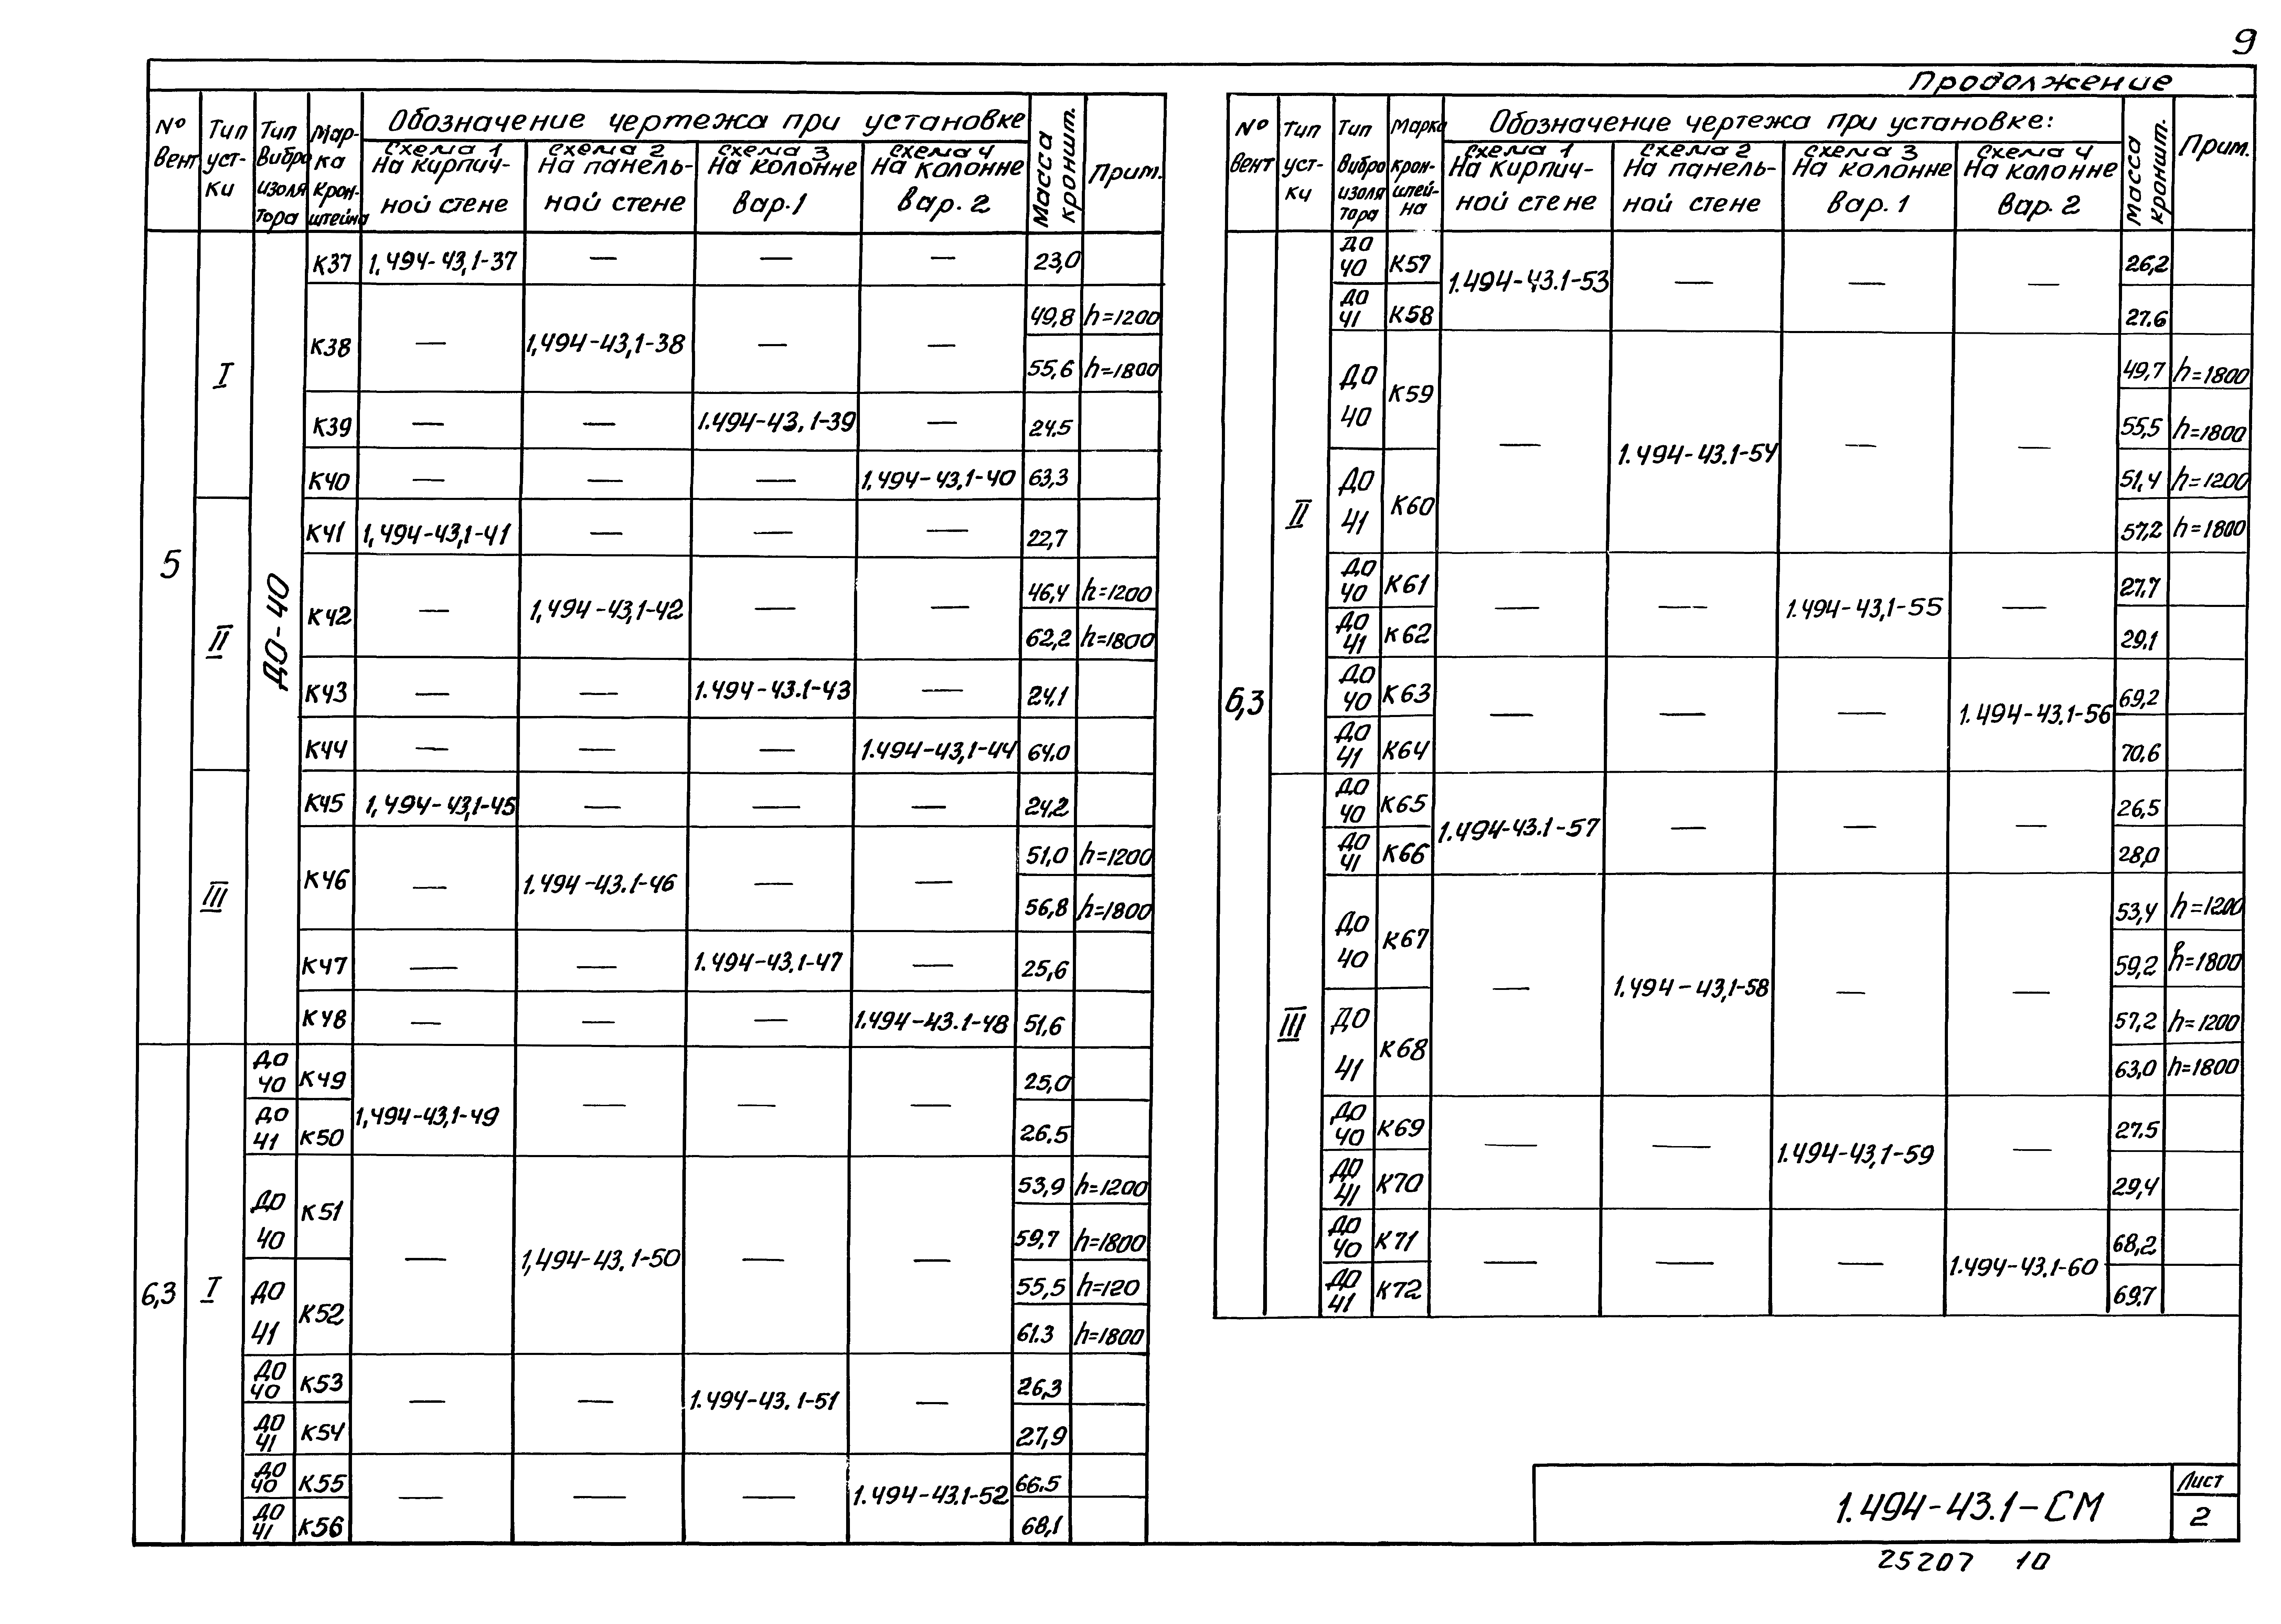 9
Продолжение
№ вент
Тип уст-ки
Тип вибро изоля тора
Мар-ка крон-штейна
Обозначение чертежа при установке
Схема 1 На кирпич-ной стене
Схема 2 На панель-ной стене
Схема 3 На колонне Вар. 1
Схема 4 На колонне Вар. 2
Масса кроншт.
Прим.
5 I ДО-40 К37 1,494-43,1-37 — — — 23,0
К38 — 1,494-43,1-38 — — 49,8 h=1200
55,6 h=1800
К39 — — 1.494-43,1-39 — 24.5
К40 — — — 1.494-43,1-40 63.3
II К41 1,494-43,1-41 — — — 22,7
К42 — 1,494-43,1-42 — — 46,4 h=1200
62,2 h=1800
К43 — — 1.494-43.1-43 — 24,1
К44 — — — 1.494-43,1-44 64.0
III К45 1,494-43,1-45 — — — 24,2
К46 — 1.494-43.1-46 — — 51,0 h=1200
56,8 h=1800
К47 — — 1.494-43,1-47 — 25,6
К48 — — — 1.494-43.1-48 51,6
6,3 I ДО 40 К49 1,494-43,1-49 — — — 25,0
ДО 41 К50 26.5
ДО 40 К51 — 1,494-43.1-50 — — 53,9 h=1200
59,7 h=1800
ДО 41 К52 55,5 h=120
61.3 h=1800
ДО 40 К53 — — 1.494-43.1-51 — 26,3
ДО 41 К54 27,9
ДО 40 К55 — — — 1.494-43.1-52 66.5
ДО 41 К56 68,1
№ вент
Тип уст-ки
Тип вибро изоля тора
Марка крон-штей-на
Обозначение чертежа при установке:
Схема 1 На кирпич-ной стене
Схема 2 На панель-ной стене
Схема 3 На колонне Вар. 1
Схема 4 На колонне Вар. 2
Масса кроншт.
Прим.
6,3 II ДО 40 К57 1.494-43.1-53 — — — 26,2
ДО 41 К58 27.6
ДО 40 К59 — 1.494-43.1-54 — — 49,7 h=1800
55,5 h=1800
ДО 41 К60 51,4 h=1200
57,2 h=1800
ДО 40 К61 — — 1.494-43,1-55 — 27.7
ДО 41 К62 29.1
ДО 40 К63 — — — 1.494-43.1-56 69,2
ДО 41 К64 70,6
III ДО 40 К65 1.494-43.1-57 — — — 26,5
ДО 41 К66 28,0
ДО 40 К67 — 1.494-43,1-58 — — 53,4 h=1200
59,2 h=1800
ДО 41 К68 57,2 h=1200
63,0 h=1800
ДО 40 К69 — — 1.494-43,1-59 — 27.5
ДО 41 К70 29,4
ДО 40 К71 — — — 1.494-43.1-60 68,2
ДО 41 К72 69.7
1.494-43.1-СМ
Лист
2
25207 10